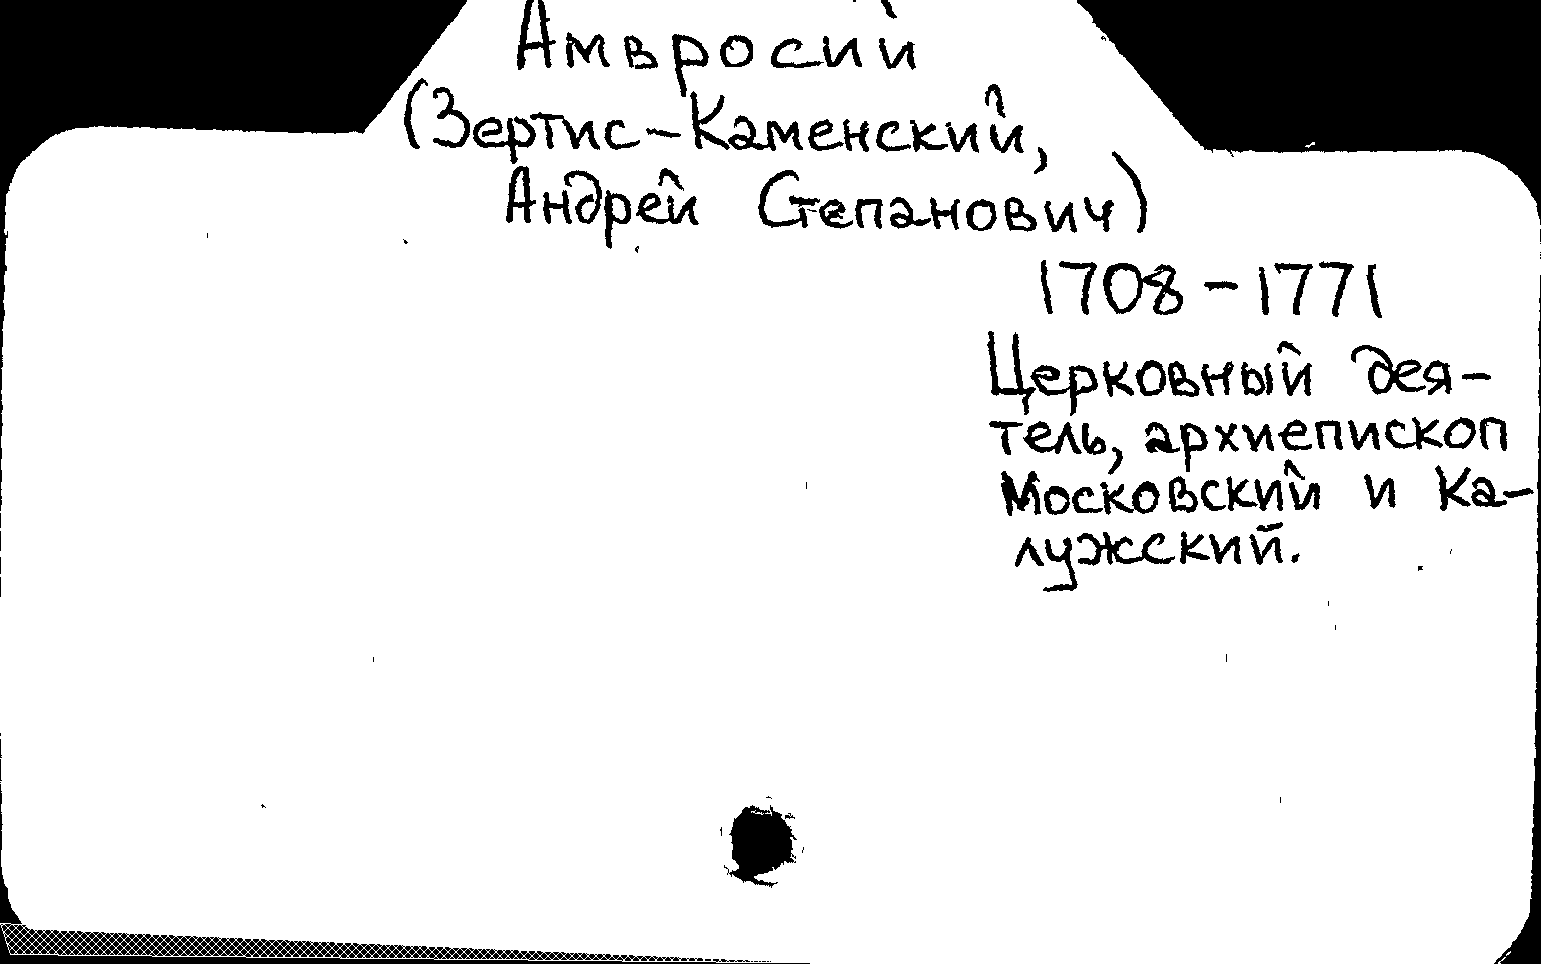 Амвросий
(Зертис-Каменский,
Андрей Степанович)
1708-1771
Церковный дея-
тель, архиепископ
Московский и Ка-
лужский.